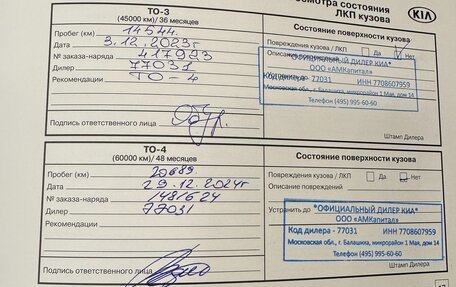 осмотра состояния
ЛКП кузова
KIA
ТО-3
(45000 км)/ 36 месяцев
Пробег (км) 14544.
Дата 3.12.2023г
№ заказа-наряда 417093
Дилер 77031
Рекомендации ТО-4
Подпись ответственного лица
Состояние поверхности кузова
Повреждения кузова / ЛКП Да Нет
Описание
*ОФИЦИАЛЬНЫЙ ДИЛЕР КИА*
ООО «АМКапитал»
Код дилера - 77031 ИНН 7708607959
Московская обл., г. Балашиха, микрорайон 1 Мая, дом 14
Телефон (495) 995-60-60
Штамп Дилера
ТО-4
(60000 км)/ 48 месяцев
Пробег (км) 20689
Дата 29.12.2024г
№ заказа-наряда 1481624
Дилер 77031
Рекомендации
Подпись ответственного лица
Состояние поверхности кузова
Повреждения кузова / ЛКП Да Нет
Описание повреждений
Устранить до
*ОФИЦИАЛЬНЫЙ ДИЛЕР КИА*
ООО «АМКапитал»
Код дилера - 77031 ИНН 7708607959
Московская обл., г. Балашиха, микрорайон 1 Мая, дом 14
Телефон (495) 995-60-60
Штамп Дилера